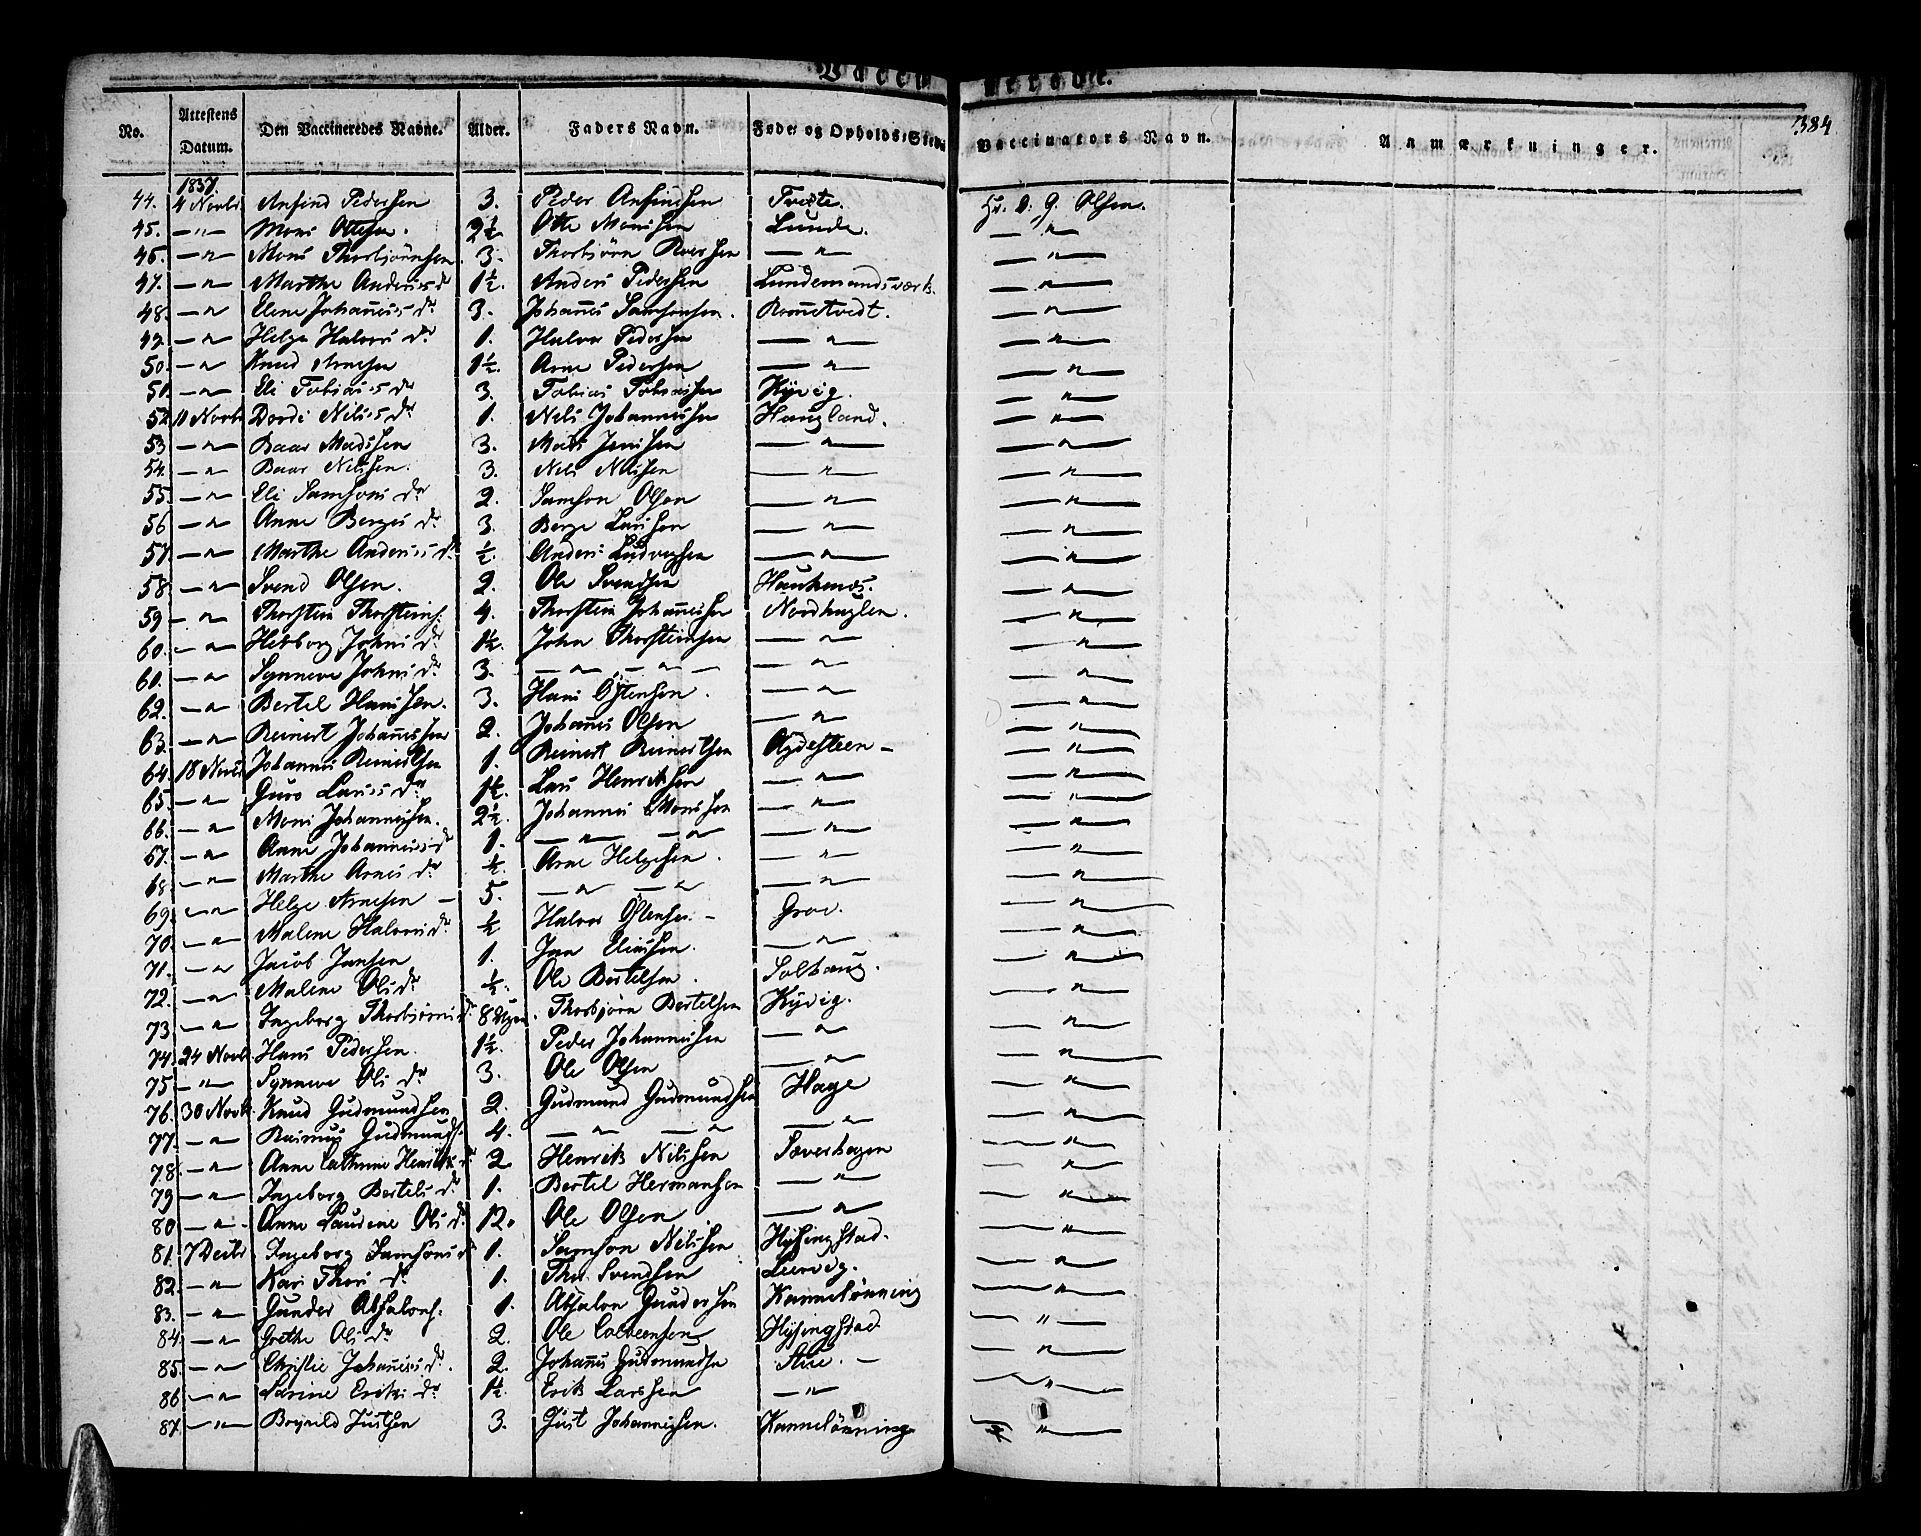 Vacci nerede.
384
No. Attestens Datum. Den Vaccineredes Navne. Alder. Faders Navn. Føde- og Opholds-Sted Vaccinators Navn. Anmærkninger.
1837.
44. 4 Novbr Anfind Pedersen 3. Peder Anfindsen Tveite. O. G. Olsen.
45. — " — Mons Ottesen. 2½ Otte Monsen Lunde. — " —
46. — " — Mons Thorbjörnsen. 3. Thorbjörn — " — — " —
47. — " — Marthe Anders d. 1½. Anders Pedersen Lundemandsværk. — " —
48. — " — Elene Johannes d. 3. Johannes Samsonsen. Rommetvedt. — " —
49. — " — Helga Halvors d. 1. Halvor Pedersen — " — — " —
50. — " — Knud Arnesen 1½. Arne Pedersen — " — — " —
51. — " — Eli Tobias d. 3. Tobias Tobiassen Kyvig. — " —
52. 11 Novbr Dordi Nils d. 1. Nels Johannessen Haugland. — " —
53 — " — Baar Madssen 3. Mads Jenssen — " — — " —
54. — " — Baar Nilssen. 3. Nils Nilssen — " — — " —
55. — " — Eli Samsons d. 2. Samson Olsen — " — — " —
56 — " — Anne Berges d. 3. Berge Larssen — " — — " —
57. — " — Marthe Anders d. ½. Anders Ludvigsen — " — — " —
58. — " — Svend Olsen. 2. Ole Svendsen Haukenæs. — " —
59. — " — Thorstein Thorsteins. 4. Thorstein Johannessen Nordhuglen. — " —
60. — " — Herborg Johns d. 1½. John Thorsteinsen — " — — " —
61. — " — Synneve Johns d. 3. — " — — " — — " — — " —
62. — " — Bertel Hanssen. 3. Hans Östensen. — " — — " —
63. — " — Reinert Johannessen 2. Johannes Olsen — " — — " —
64. 18 Novb Johannes Reinertsen 1. Reinert Reinertsen Rydesteen — — " —
65. — " — Guro Lars d. 1½. Lars Henriksen — " — — " —
66. — " — Mons Johannessen. 2½. Johannes Monssen — " — — " —
67. — " — Anne Johannes d. 1. — " — — " — — " — — " —
68. — " — Marthe Arnes d. ½. Arne Helgesen. — " — — " —
69. — " — Helge Arnesen — 5. — " — — " — — " — — " —
70. — " — Malene Halvors d. ½ Halvor Östensen — Grov. — " —
71. — " — Jacob Jansen 1. Jan Eliassen. — " — — " —
72. — " — Malene Ols d. ½. Ole Bertelsen. Solhaug. — " —
73 — " — Ingeborg Thorbjörns d. 8 Ugen. Thorbjörn Bertelsen Kyvig. — " —
74. 24 Novb. Hans Pedersen. 1½. Peder Johannessen — " — — " —
75 — " — Synneve Ols d. 3. Ole Olsen — " — — " —
76. 30 Novb. Knud Gudmundsen 2. Gudmund Gudmundsen Hage — " —
77. — " — Rasmus Gudmunds. 4. — " — — " — — " — — " —
78. — " — Anne Cathrine Henriks d. 2 Henrik Nilssen Sæverhagen — " —
79 — " — Ingeborg Bertels d. 1. Bertel Hermansen — " — — " —
80 — " — Anne Laurine Ols d. 12. Ole Olsen — " — — " —
81. 7 Decbr. Ingeborg Samsons d 1. Samson Nilssen Hysingstad. — " —
82. — " — Kari Thors d. 1. Thor Svendsen Leervig. — " —
83. — " — Gunder Absalons. 1. Absalon Gundersen Kannelönning — " —
84 — " — Grethe Ols d. 2. Ole Hysingstad — " —
85. — " — Christie Johannes d. 2. Johannes Gudmundsen Aue. — — " —
86 — " — Sarine Eriks d. 1½. Erik Larssen — " — — " —
87. — " — Justsen 3. Just Johannessen. Kannelönning — " —